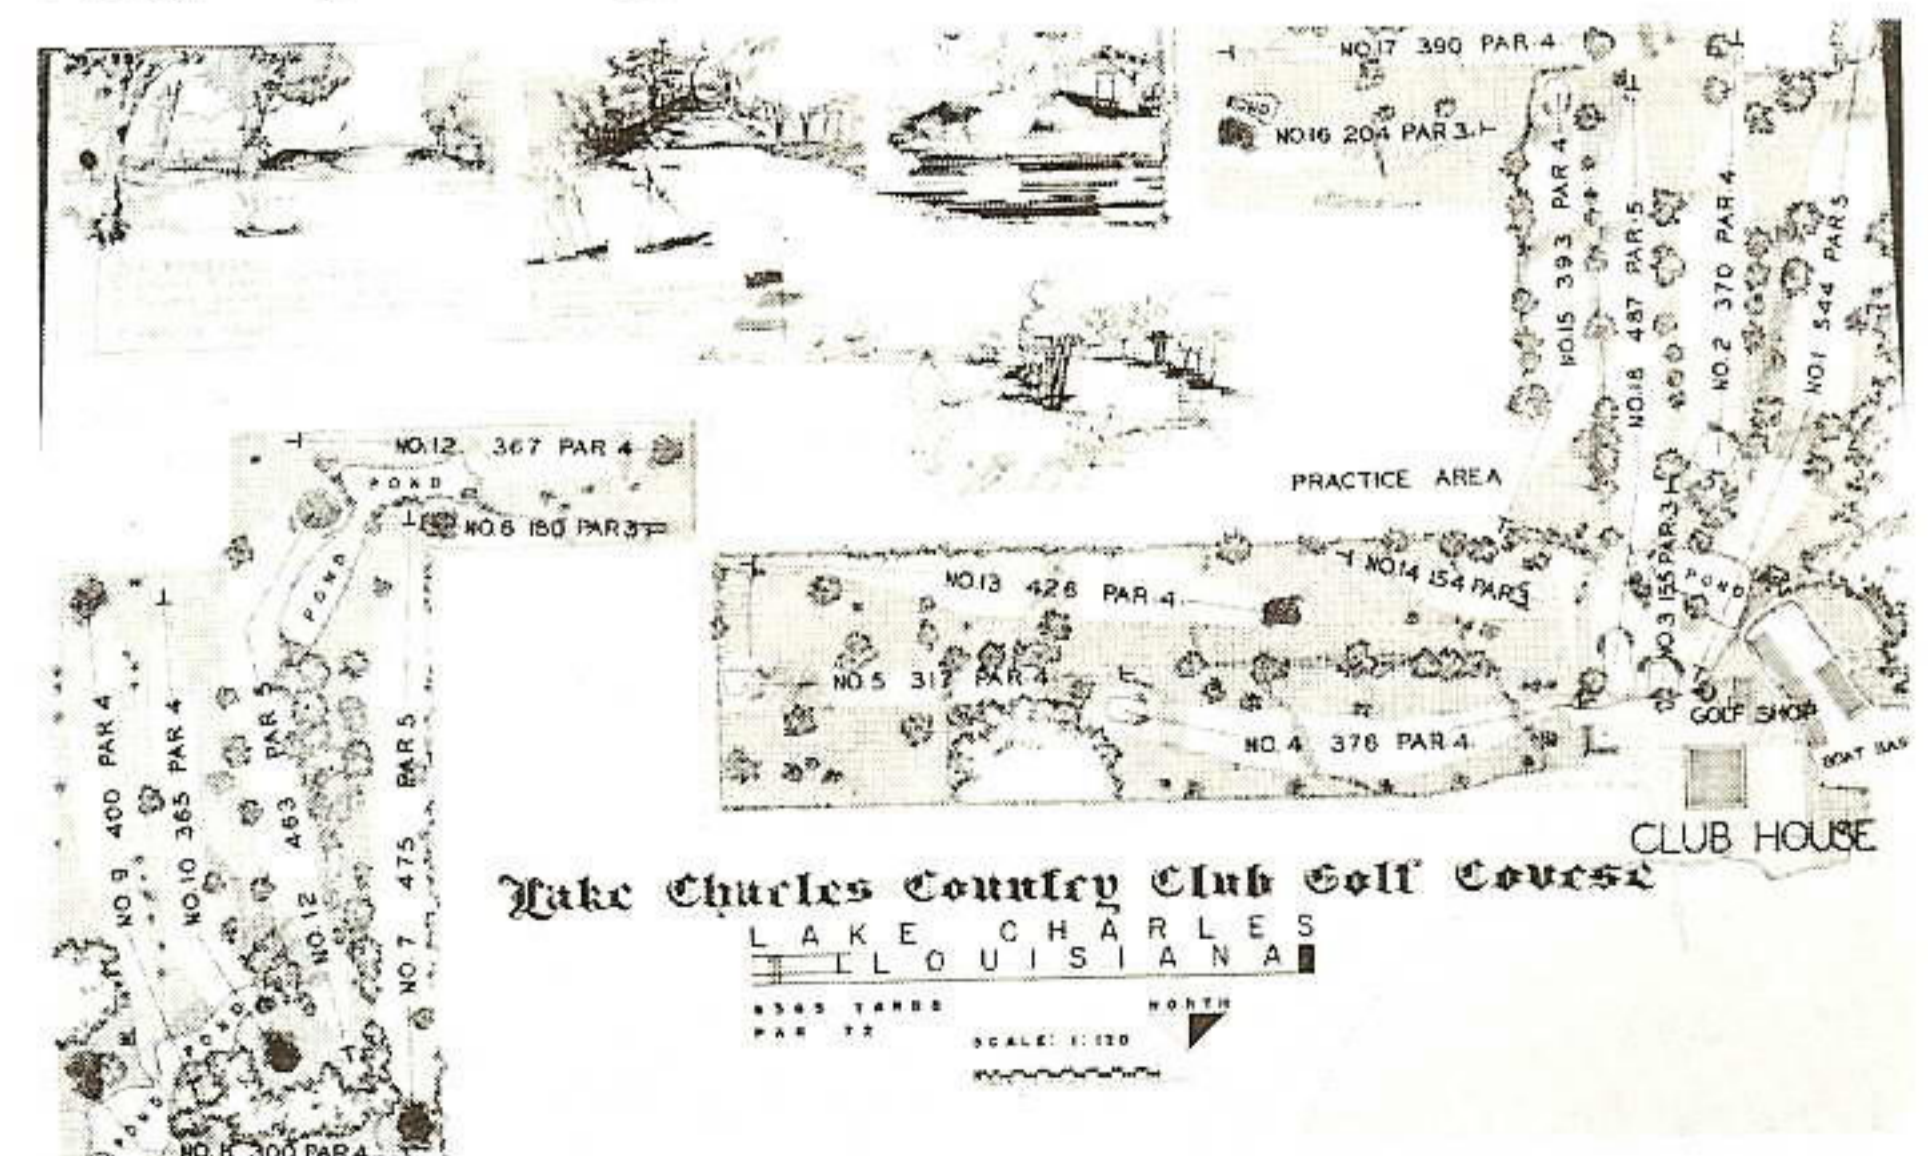 NO.17 390 PAR 4
POND
NO.16 204 PAR 3
NO.15 393 PAR 4
NO.18 487 PAR 5
NO.2 370 PAR 4
NO.1 544 PAR 5
NO.12 367 PAR 4
POND
NO.6 180 PAR 3
POND
PRACTICE AREA
NO.13 426 PAR 4
NO.14 154 PAR 3
NO.3 155 PAR 3
POND
NO.5 317 PAR 4
NO.4 376 PAR 4
GOLF SHOP
BOAT
CLUB HOUSE
NO 9 400 PAR 4
NO.10 365 PAR 4
NO.12 463 PAR 5
NO 7 475 PAR 5
POND
POND
300 PAR 4
Lake Charles Country Club Golf Course
LAKE CHARLES
LOUISIANA
6365 YARDS
PAR 72
NORTH
SCALE: 1:120